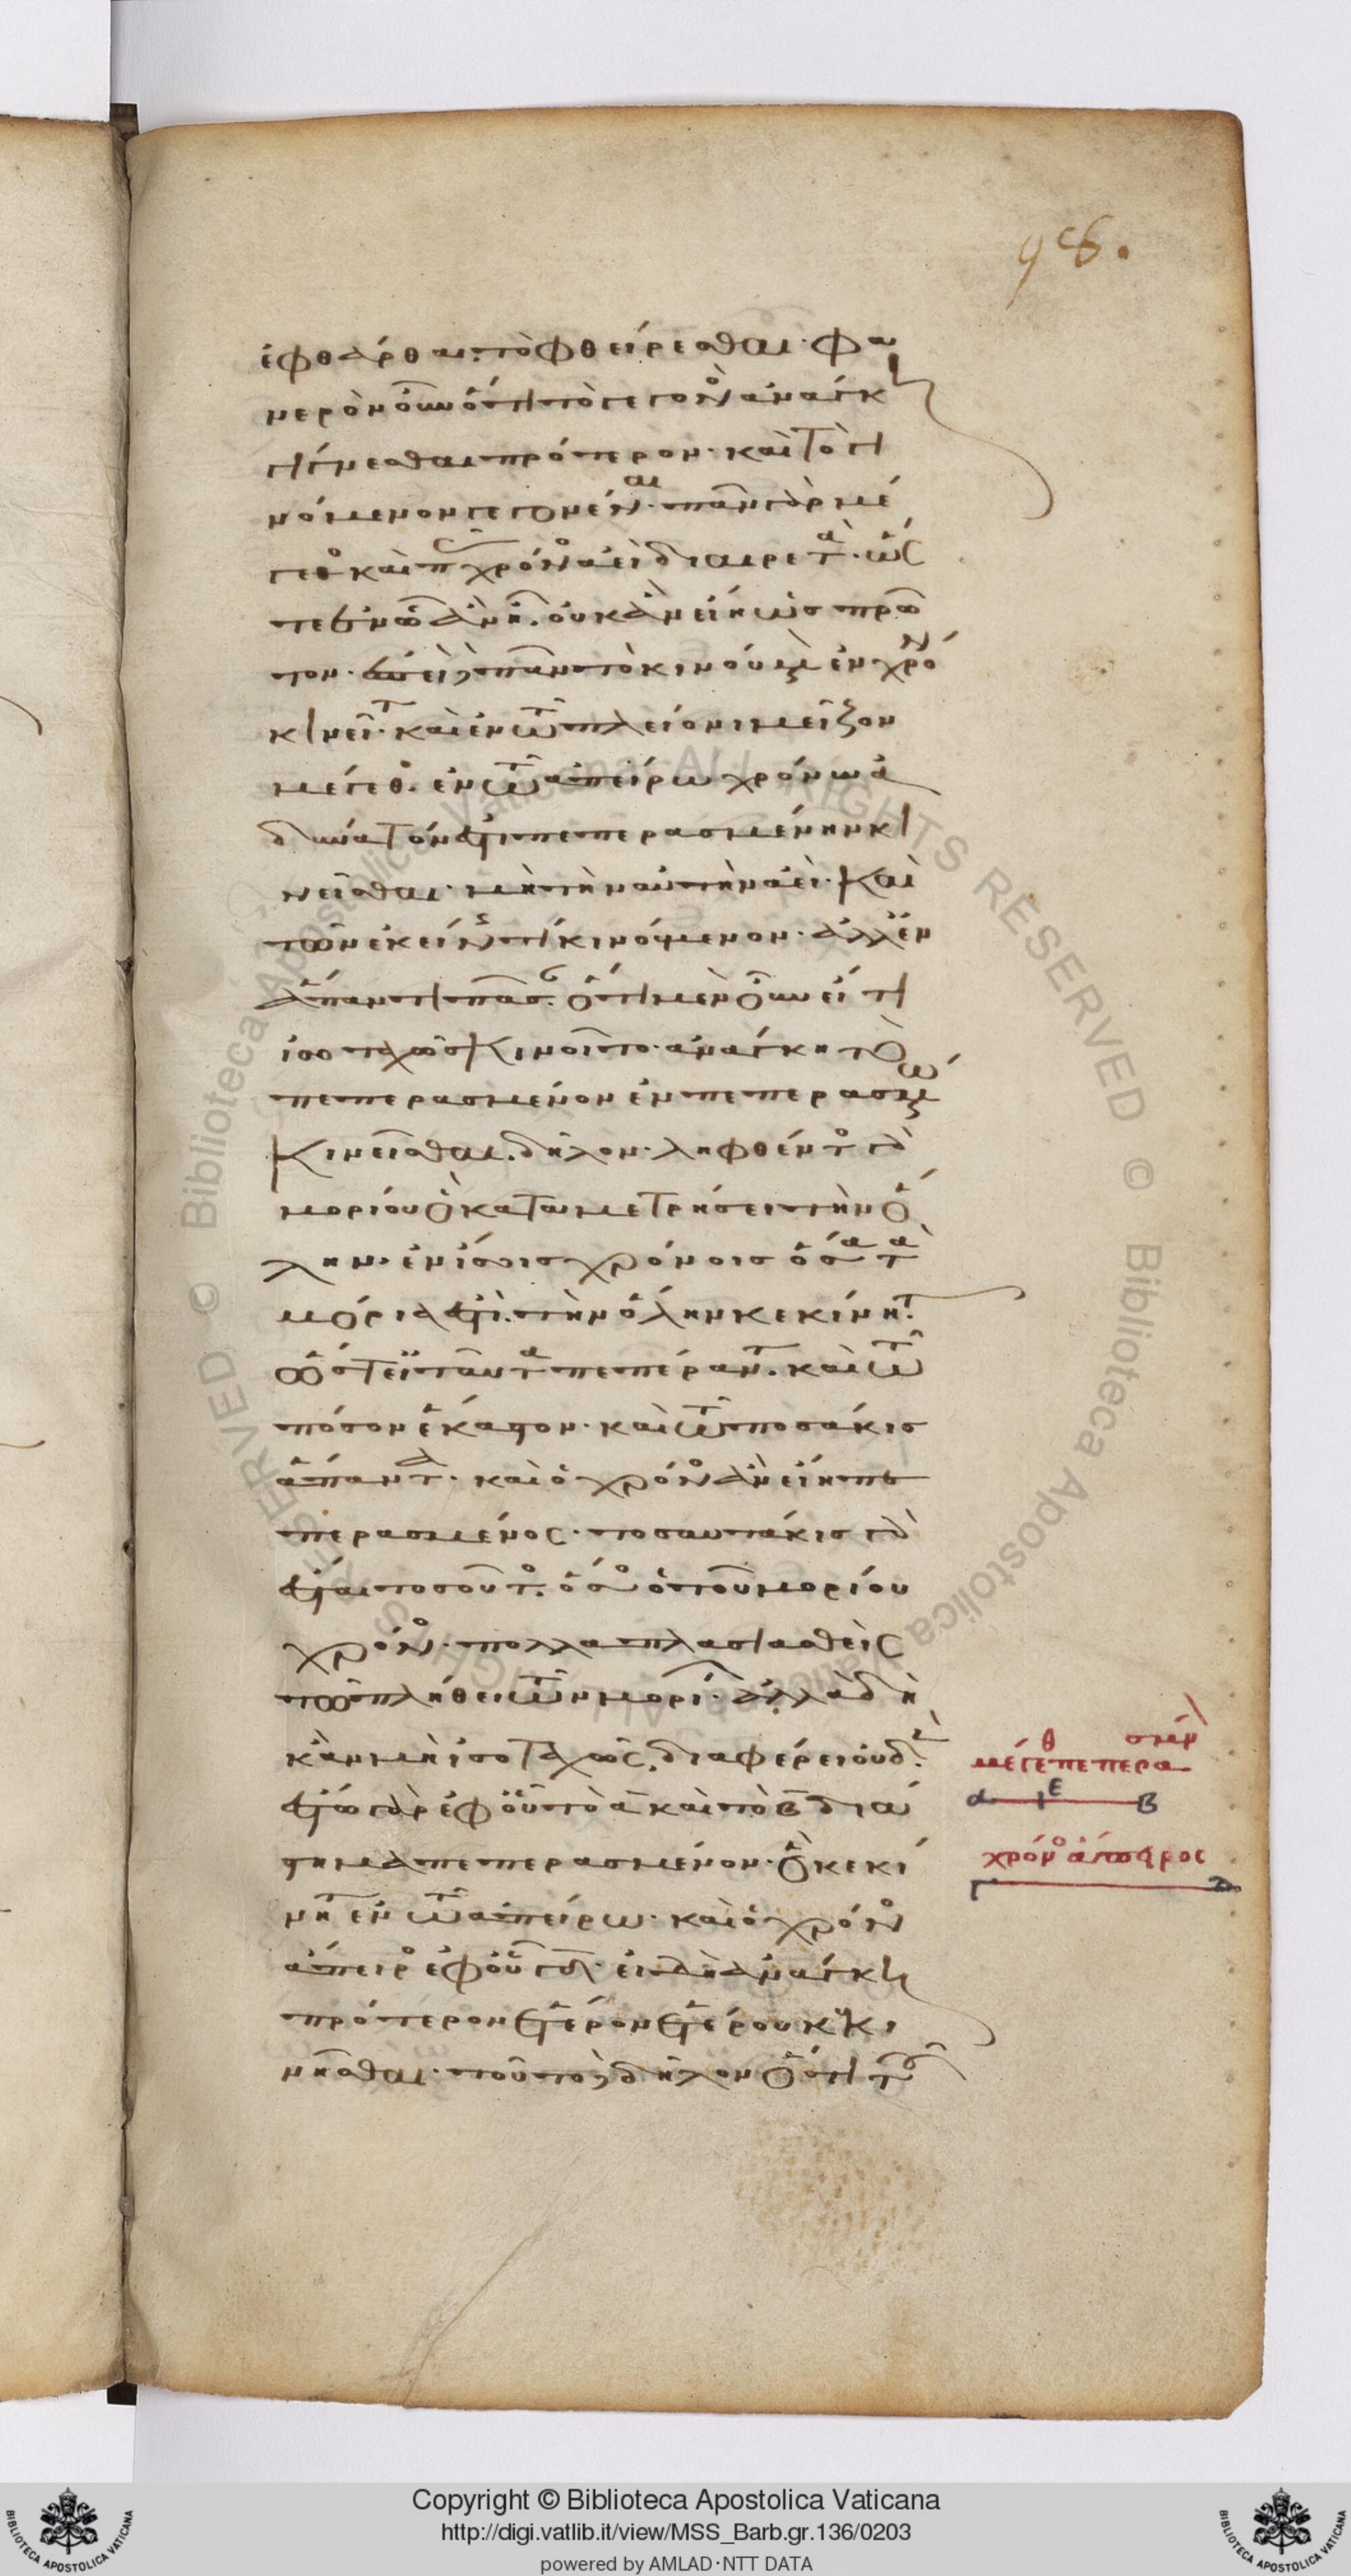 ἐφθάρθαι τὸ φθείρεσθαι. φα
νερὸν οὖν ὅτι τὸ γεγονὸς ἀνάγκη
γίνεσθαι πρότερον. καὶ τὸ γι
νόμενον γεγονέναι. πᾶν γὰρ μέ
γεθος καὶ πᾶς χρόνος ἀεὶ διαιρετά. ὥσ
τ' ἐν ᾧ ἂν ᾖ. οὐκ ἂν εἴη ὡς πρώ
τῳ. ἐπεὶ δὲ πᾶν τὸ κινούμενον ἐν χρόνῳ
κινεῖται. καὶ ἐν τῷ πλείονι μεῖζον
μέγεθος. ἐν τῷ ἀπείρῳ χρόνῳ ἀ
δύνατόν ἐστι πεπερασμένην κι
νεῖσθαι. μὴ τὴν αὐτὴν ἀεὶ. καὶ
τῶν ἐκείνης τι κινούμενον. ἀλλ' ἐν
ἅπαντι πᾶσαν. ὅτι μὲν οὖν εἴ τι
ἰσοταχῶς κινοῖτο. ἀνάγκη τὸ
πεπερασμένον ἐν πεπερασμένῳ
κινεῖσθαι. δῆλον. ληφθέντος γὰρ
μορίου ὃ καταμετρήσει τὴν ὅ
λην. ἐν ἴσοις χρόνοις ὅσα τὰ
μόριά ἐστι. τὴν ὅλην κεκίνηται.
ὥστ' ἐπεὶ ταῦτα πεπέρανται. καὶ τῷ
πόσον ἕκαστον. καὶ τῷ ποσάκις
ἅπαντα. καὶ ὁ χρόνος ἂν εἴη πε
περασμένος. τοσαυτάκις γὰρ
ἔσται τοσοῦτος. ὅσος ὁ τοῦ μορίου
χρόνος. πολλαπλασιασθεὶς
τῷ πλήθει τῶν μορίων. ἀλλὰ δὴ
κἂν μὴ ἰσοταχῶς. διαφέρει οὐδέν.
ἔστω γὰρ ἐφ' οὗ τὸ α καὶ τὸ β διά
στημα πεπερασμένον. ὃ κεκί
νηται ἐν τῷ ἀπείρῳ. καὶ ὁ χρόνος
ἄπειρος ἐφ' οὗ τὸ γδ. εἰ δὴ ἀνάγκη
πρότερον ἕτερον ἑτέρου κεκι
νῆσθαι. τοῦτο δὲ δῆλον ὅτι τοῦ
μέγεθος πεπερασμένον
α ε β
χρόνος ἄπειρος
γ δ
Copyright © Biblioteca Apostolica Vaticana
http://digi.vatlib.it/view/MSS_Barb.gr.136/0203
powered by AMLAD·NTT DATA